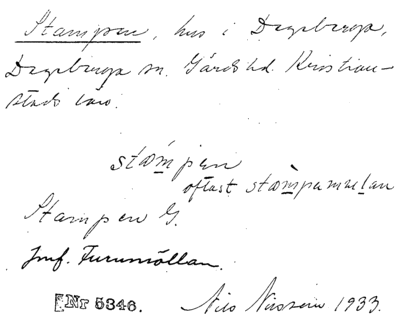 Stampen, hus i Degeberga,
Degeberga sn. Gärds hd. Kristian-
stads län.
stæmpen
oftast stæmpamølan
Stampen G.
Jmf. Furumöllan.
Nr 5346. Nils Nilsson 1933.